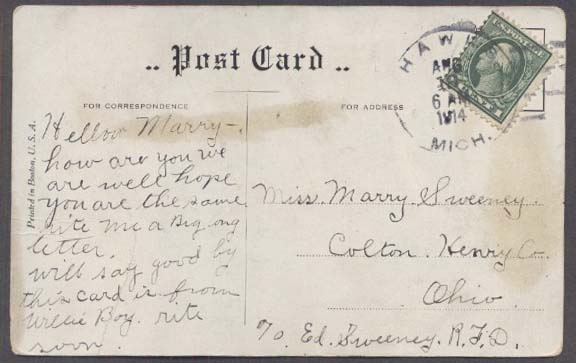 .. Post Card ..
HAW
AUG
6 AM
1914
MICH.
FOR CORRESPONDENCE
FOR ADDRESS
Printed in Boston, U.S.A.
Hellow Marry-
how are you we
are well hope
you are the same
rite me a Big ong
letter.
will say good by
this card is from
Willie Boy. rite
soon.
Miss. Marry Sweeney.
Colton. Henry Co.
Ohio
c/o. Ed. Sweeney. R.F.D.